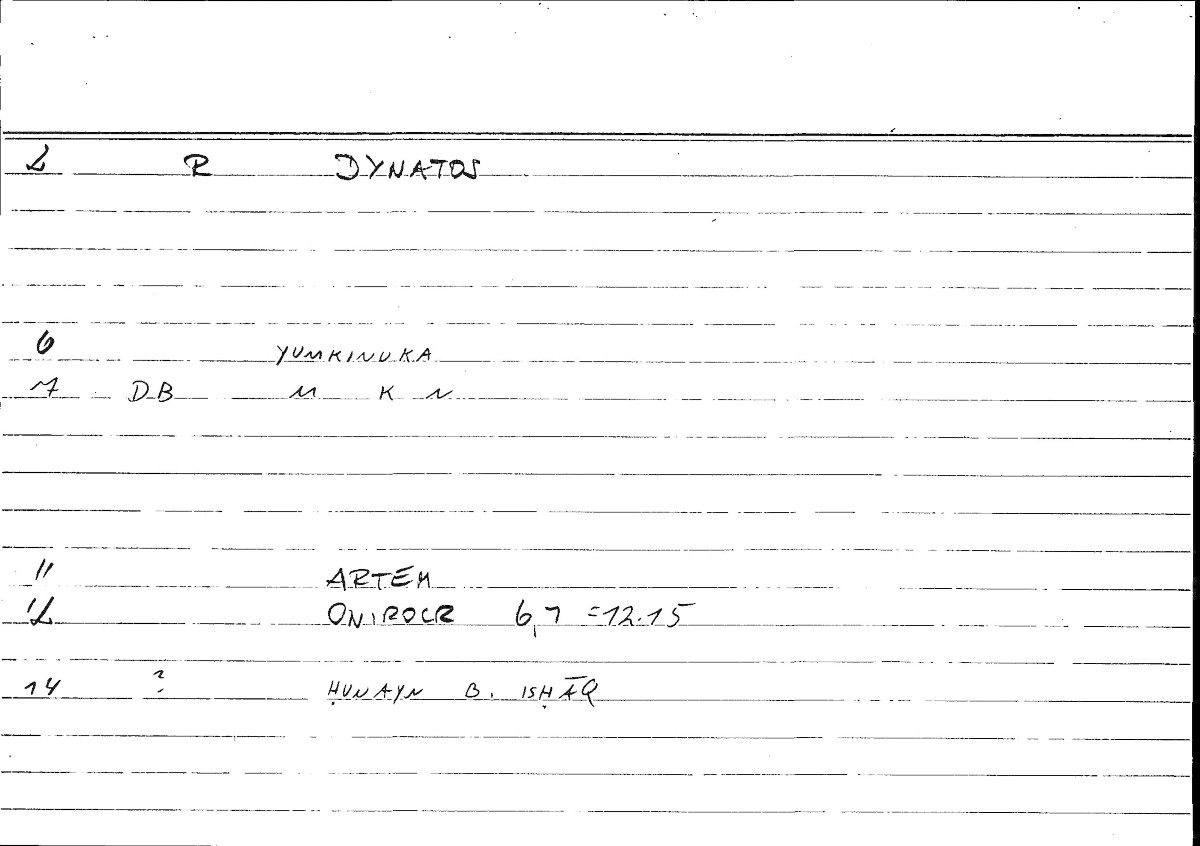 2 R DYNATOS
6 YUMKINUKA
7 DB M K N
11 ARTEM
12 ONIROCR 6,7 =12.15
14 ? ḤUNAYN B. ISḤĀQ